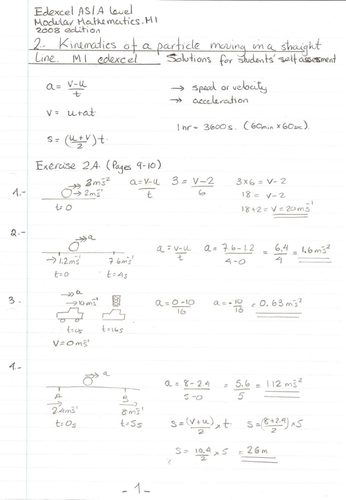 Edexcel AS/A Level
Modular Mathematics. M1
2008 edition
2. Kinematics of a particle moving in a straight
line. M1 edexcel Solutions for students' self assessment
a = v-u/t → speed or velocity
↠ acceleration
v = u+at
1hr = 3600s. (60min × 60sec)
s = (u+v/2) t
Exercise 2A. (Pages 9-10)
1.- ↠ 3ms⁻² a = v-u/t 3 = v-2/6 3×6 = v-2
→ 2ms⁻¹ 18 = v-2
t=0 18+2 = v = 20ms⁻¹
2.- ↠ a a = v-u/t a = 7.6-1.2/4-0 = 6.4/4 = 1.6ms⁻²
→ 1.2ms⁻¹ 7.6ms⁻¹
t=0 t=4s
3 ↠ a a = 0-10/16 a = -10/16 = 0.63ms⁻²
→ 10ms⁻¹
t=0s t=16s
V = 0ms⁻¹
4.- ↠ a a = 8-2.4/5-0 = 5.6/5 = 1.12ms⁻²
A B
2.4ms⁻¹ 8ms⁻¹ s = (v+u)/2 × t s = (8+2.4)/2 × 5
t=0s t=5s
s = 10.4/2 × 5 = 26m
-1-